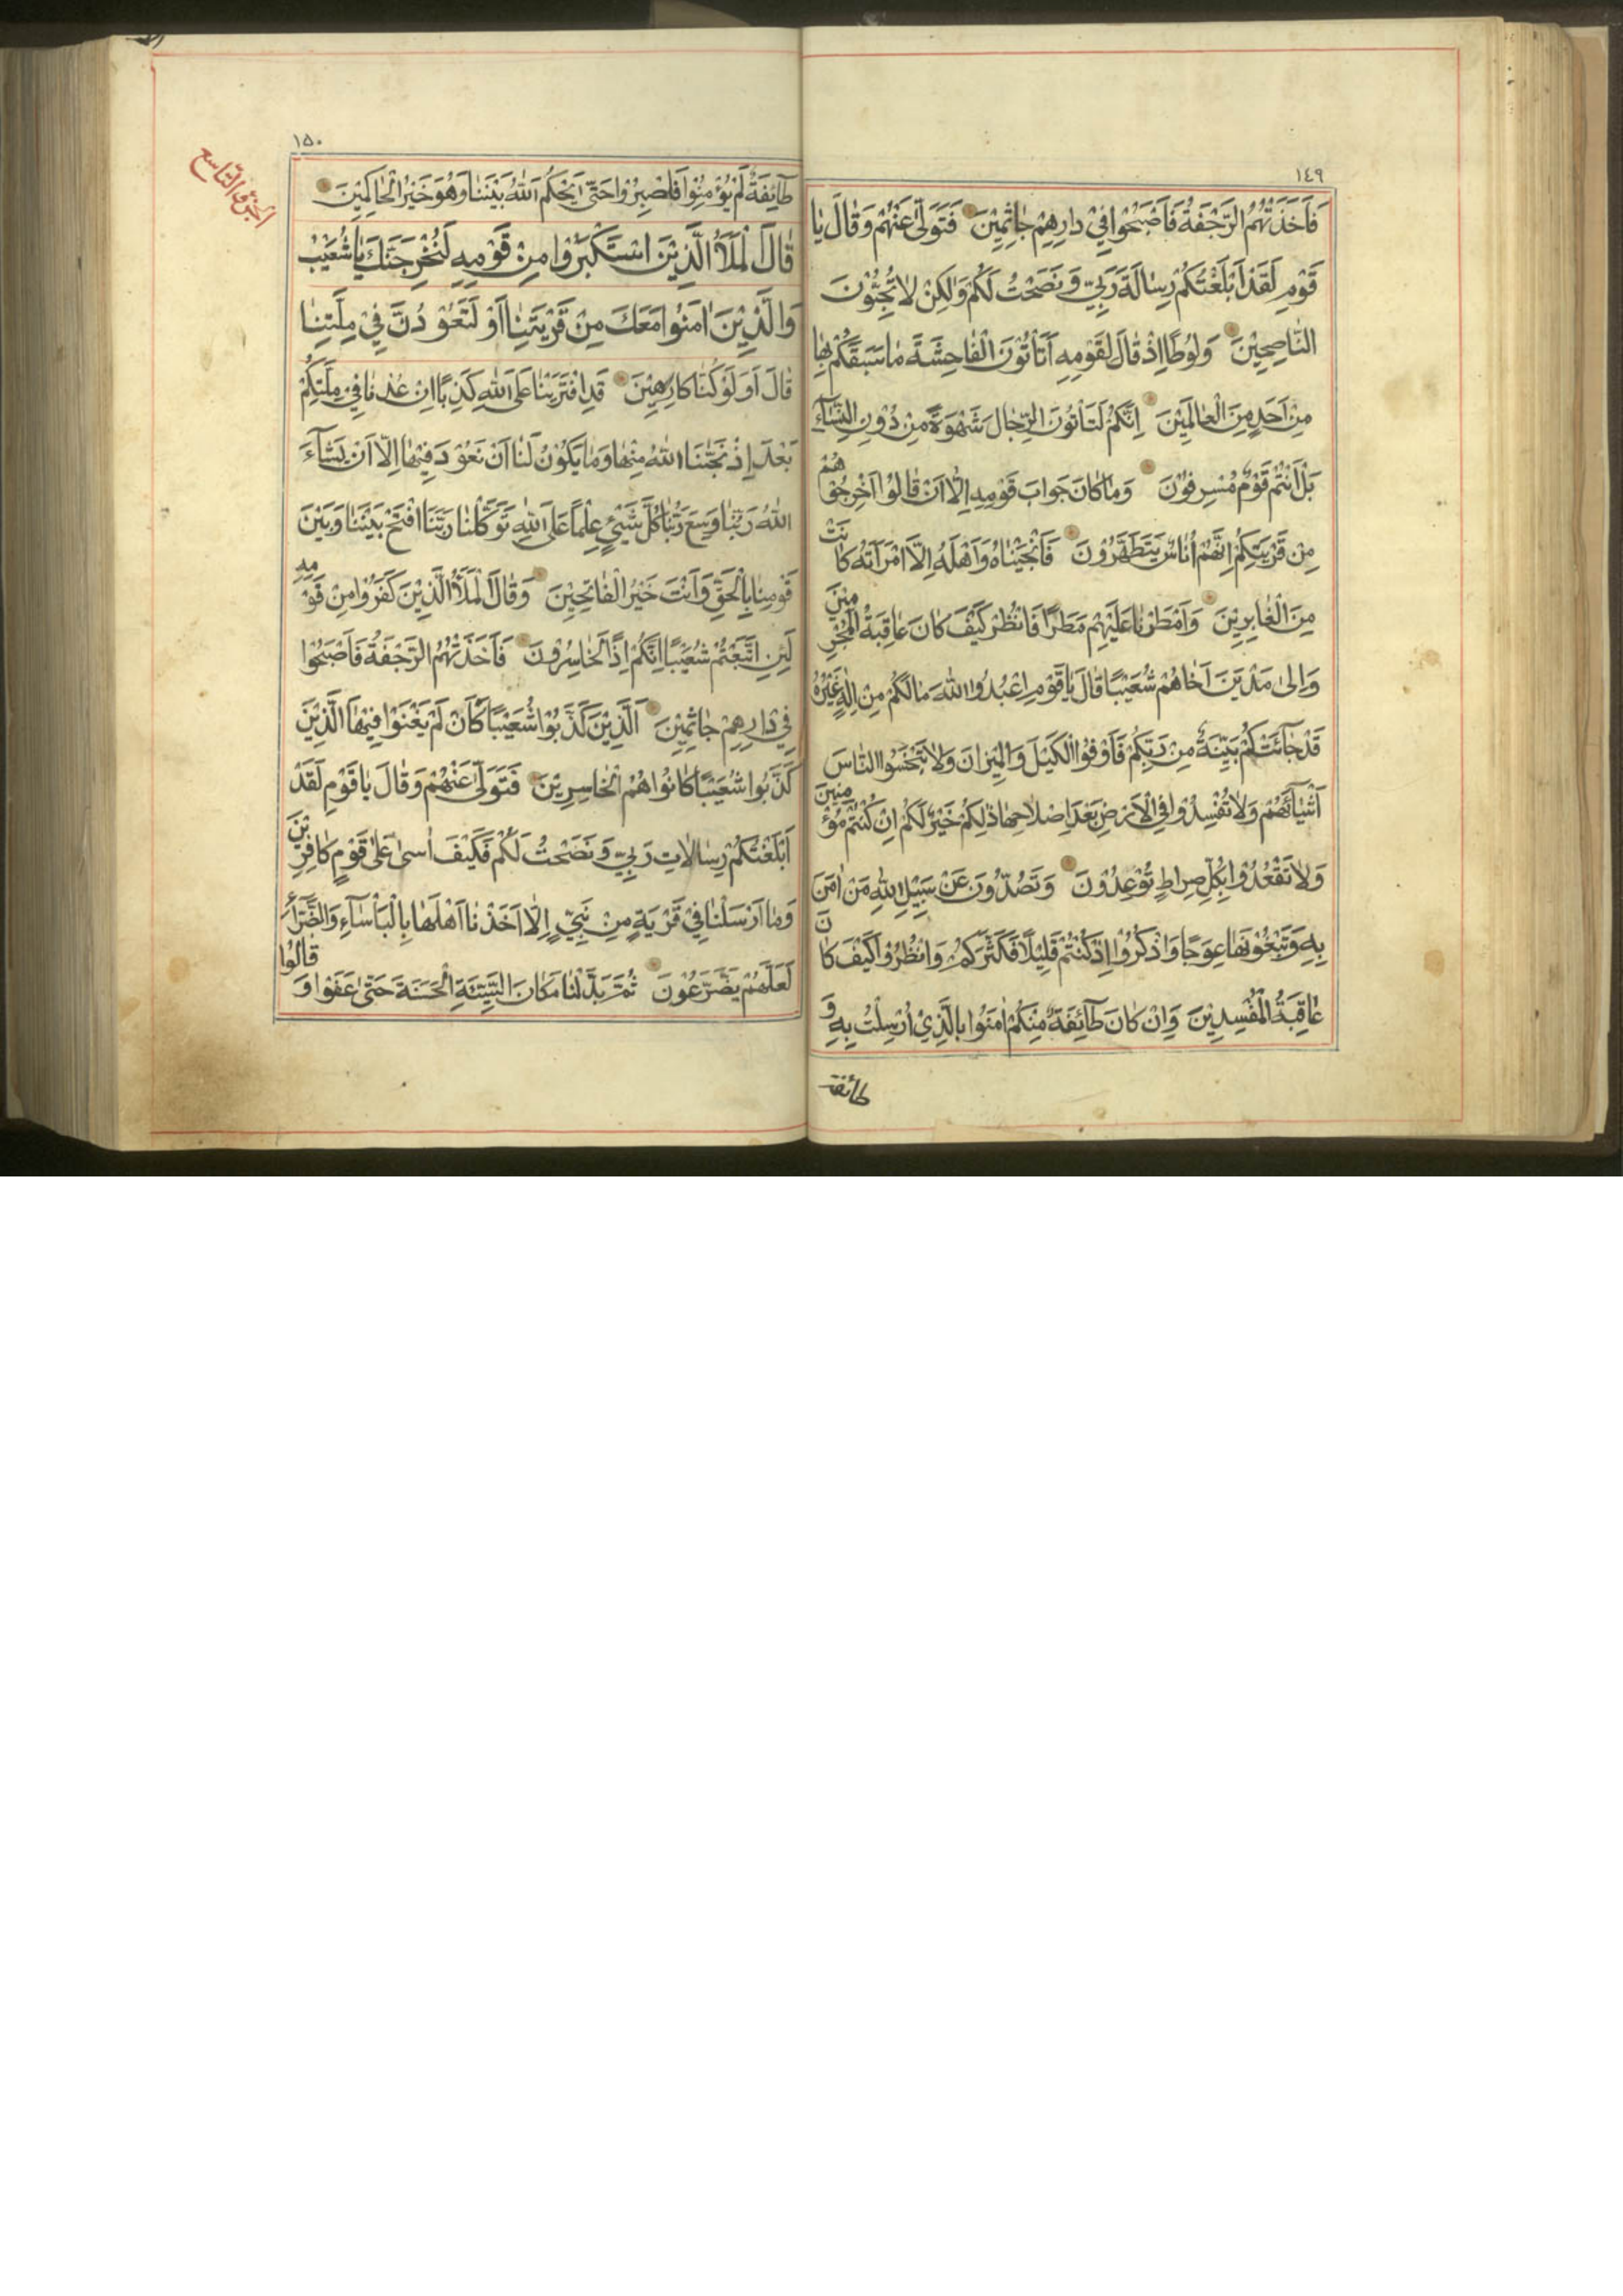 ١٤٩
فَاَخَذَتْهُمُ الرَّجْفَةُ فَاَصْبَحُوا فِي دارِهِمْ جاثِمِيْنَ فَتَوَلّٰى عَنْهُمْ وَقٰالَ يٰا
قَوْمِ لَقَدْ اَبْلَغْتُكُمْ رِسٰالَةَ رَبِّيْ وَنَصَحْتُ لَكُمْ وَلٰكِنْ لاٰ تُحِبُّوْنَ
النّٰاصِحِيْنَ وَلُوْطًا اِذْ قٰالَ لِقَوْمِهِ اَتَأْتُوْنَ الْفٰاحِشَةَ مٰا سَبَقَكُمْ بِهٰا
مِنْ اَحَدٍ مِنَ الْعٰالَمِيْنَ اِنَّكُمْ لَتَأْتُوْنَ الرِّجٰالَ شَهْوَةً مِنْ دُوْنِ النِّسٰآءِ
بَلْ اَنْتُمْ قَوْمٌ مُسْرِفُوْنَ وَمٰا كٰانَ جَوٰابَ قَوْمِهِ اِلّٰا اَنْ قٰالُوْا اَخْرِجُوْهُمْ
مِنْ قَرْيَتِكُمْ اِنَّهُمْ اُنٰاسٌ يَتَطَهَّرُوْنَ فَاَنْجَيْنٰاهُ وَاَهْلَهُ اِلَّا امْرَاَتَهُ كٰانَتْ
مِنَ الْغٰابِرِيْنَ وَاَمْطَرْنٰا عَلَيْهِمْ مَطَرًا فَانْظُرْ كَيْفَ كٰانَ عٰاقِبَةُ الْمُجْرِمِيْنَ
وَاِلىٰ مَدْيَنَ اَخٰاهُمْ شُعَيْبًا قٰالَ يٰا قَوْمِ اعْبُدُوا اللّٰهَ مٰا لَكُمْ مِنْ اِلٰهٍ غَيْرُهُ
قَدْ جٰآئَتْكُمْ بَيِّنَةٌ مِنْ رَبِّكُمْ فَاَوْفُوا الْكَيْلَ وَالْمِيْزٰانَ وَلاٰ تَبْخَسُوا النّٰاسَ
اَشْيٰآئَهُمْ وَلاٰ تُفْسِدُوْا فِي الْاَرْضِ بَعْدَ اِصْلاٰحِهٰا ذٰلِكُمْ خَيْرٌ لَكُمْ اِنْ كُنْتُمْ مُؤْمِنِيْنَ
وَلاٰ تَقْعُدُوْا بِكُلِّ صِرٰاطٍ تُوْعِدُوْنَ وَتَصُدُّوْنَ عَنْ سَبِيْلِ اللّٰهِ مَنْ اٰمَنَ
بِهِ وَتَبْغُوْنَهٰا عِوَجًا وَاذْكُرُوْا اِذْ كُنْتُمْ قَلِيْلًا فَكَثَّرَكُمْ وَانْظُرُوْا كَيْفَ كٰانَ
عٰاقِبَةُ الْمُفْسِدِيْنَ وَاِنْ كٰانَ طٰآئِفَةٌ مِنْكُمْ اٰمَنُوْا بِالَّذِيْ اُرْسِلْتُ بِهِ وَ
طائفة
١٥٠
الجزء التاسع
طٰآئِفَةٌ لَمْ يُؤْمِنُوْا فَاصْبِرُوْا حَتّٰى يَحْكُمَ اللّٰهُ بَيْنَنٰا وَهُوَ خَيْرُ الْحٰاكِمِيْنَ
قٰالَ الْمَلَاُ الَّذِيْنَ اسْتَكْبَرُوْا مِنْ قَوْمِهِ لَنُخْرِجَنَّكَ يٰا شُعَيْبُ
وَالَّذِيْنَ اٰمَنُوْا مَعَكَ مِنْ قَرْيَتِنٰا اَوْ لَتَعُوْدُنَّ فِيْ مِلَّتِنٰا
قٰالَ اَوَلَوْ كُنّٰا كٰارِهِيْنَ قَدِ افْتَرَيْنٰا عَلَى اللّٰهِ كَذِبًا اِنْ عُدْنٰا فِيْ مِلَّتِكُمْ
بَعْدَ اِذْ نَجّٰنَا اللّٰهُ مِنْهٰا وَمٰا يَكُوْنُ لَنٰا اَنْ نَعُوْدَ فِيْهٰا اِلّٰا اَنْ يَشٰآءَ
اللّٰهُ رَبُّنٰا وَسِعَ رَبُّنٰا كُلَّ شَيْئٍ عِلْمًا عَلَى اللّٰهِ تَوَكَّلْنٰا رَبَّنَا افْتَحْ بَيْنَنٰا وَبَيْنَ
قَوْمِنٰا بِالْحَقِّ وَاَنْتَ خَيْرُ الْفٰاتِحِيْنَ وَقٰالَ الْمَلَاُ الَّذِيْنَ كَفَرُوْا مِنْ قَوْمِهِ
لَئِنِ اتَّبَعْتُمْ شُعَيْبًا اِنَّكُمْ اِذًا لَخٰاسِرُوْنَ فَاَخَذَتْهُمُ الرَّجْفَةُ فَاَصْبَحُوْا
فِيْ دٰارِهِمْ جٰاثِمِيْنَ اَلَّذِيْنَ كَذَّبُوْا شُعَيْبًا كَاَنْ لَمْ يَغْنَوْا فِيْهٰا الَّذِيْنَ
كَذَّبُوا شُعَيْبًا كٰانُوْا هُمْ الْخٰاسِرِيْنَ فَتَوَلّٰى عَنْهُمْ وَقٰالَ يٰا قَوْمِ لَقَدْ
اَبْلَغْتُكُمْ رِسٰالاٰتِ رَبِّيْ وَنَصَحْتُ لَكُمْ فَكَيْفَ اٰسىٰ عَلىٰ قَوْمٍ كٰافِرِيْنَ
وَمٰا اَرْسَلْنٰا فِيْ قَرْيَةٍ مِنْ نَبِيٍّ اِلّٰا اَخَذْنٰا اَهْلَهٰا بِالْبَأْسٰآءِ وَالضَّرّٰآءِ
لَعَلَّهُمْ يَضَّرَّعُوْنَ ثُمَّ بَدَّلْنٰا مَكٰانَ السَّيِّئَةِ الْحَسَنَةَ حَتّٰى عَفَوْا وَقٰالُوْا